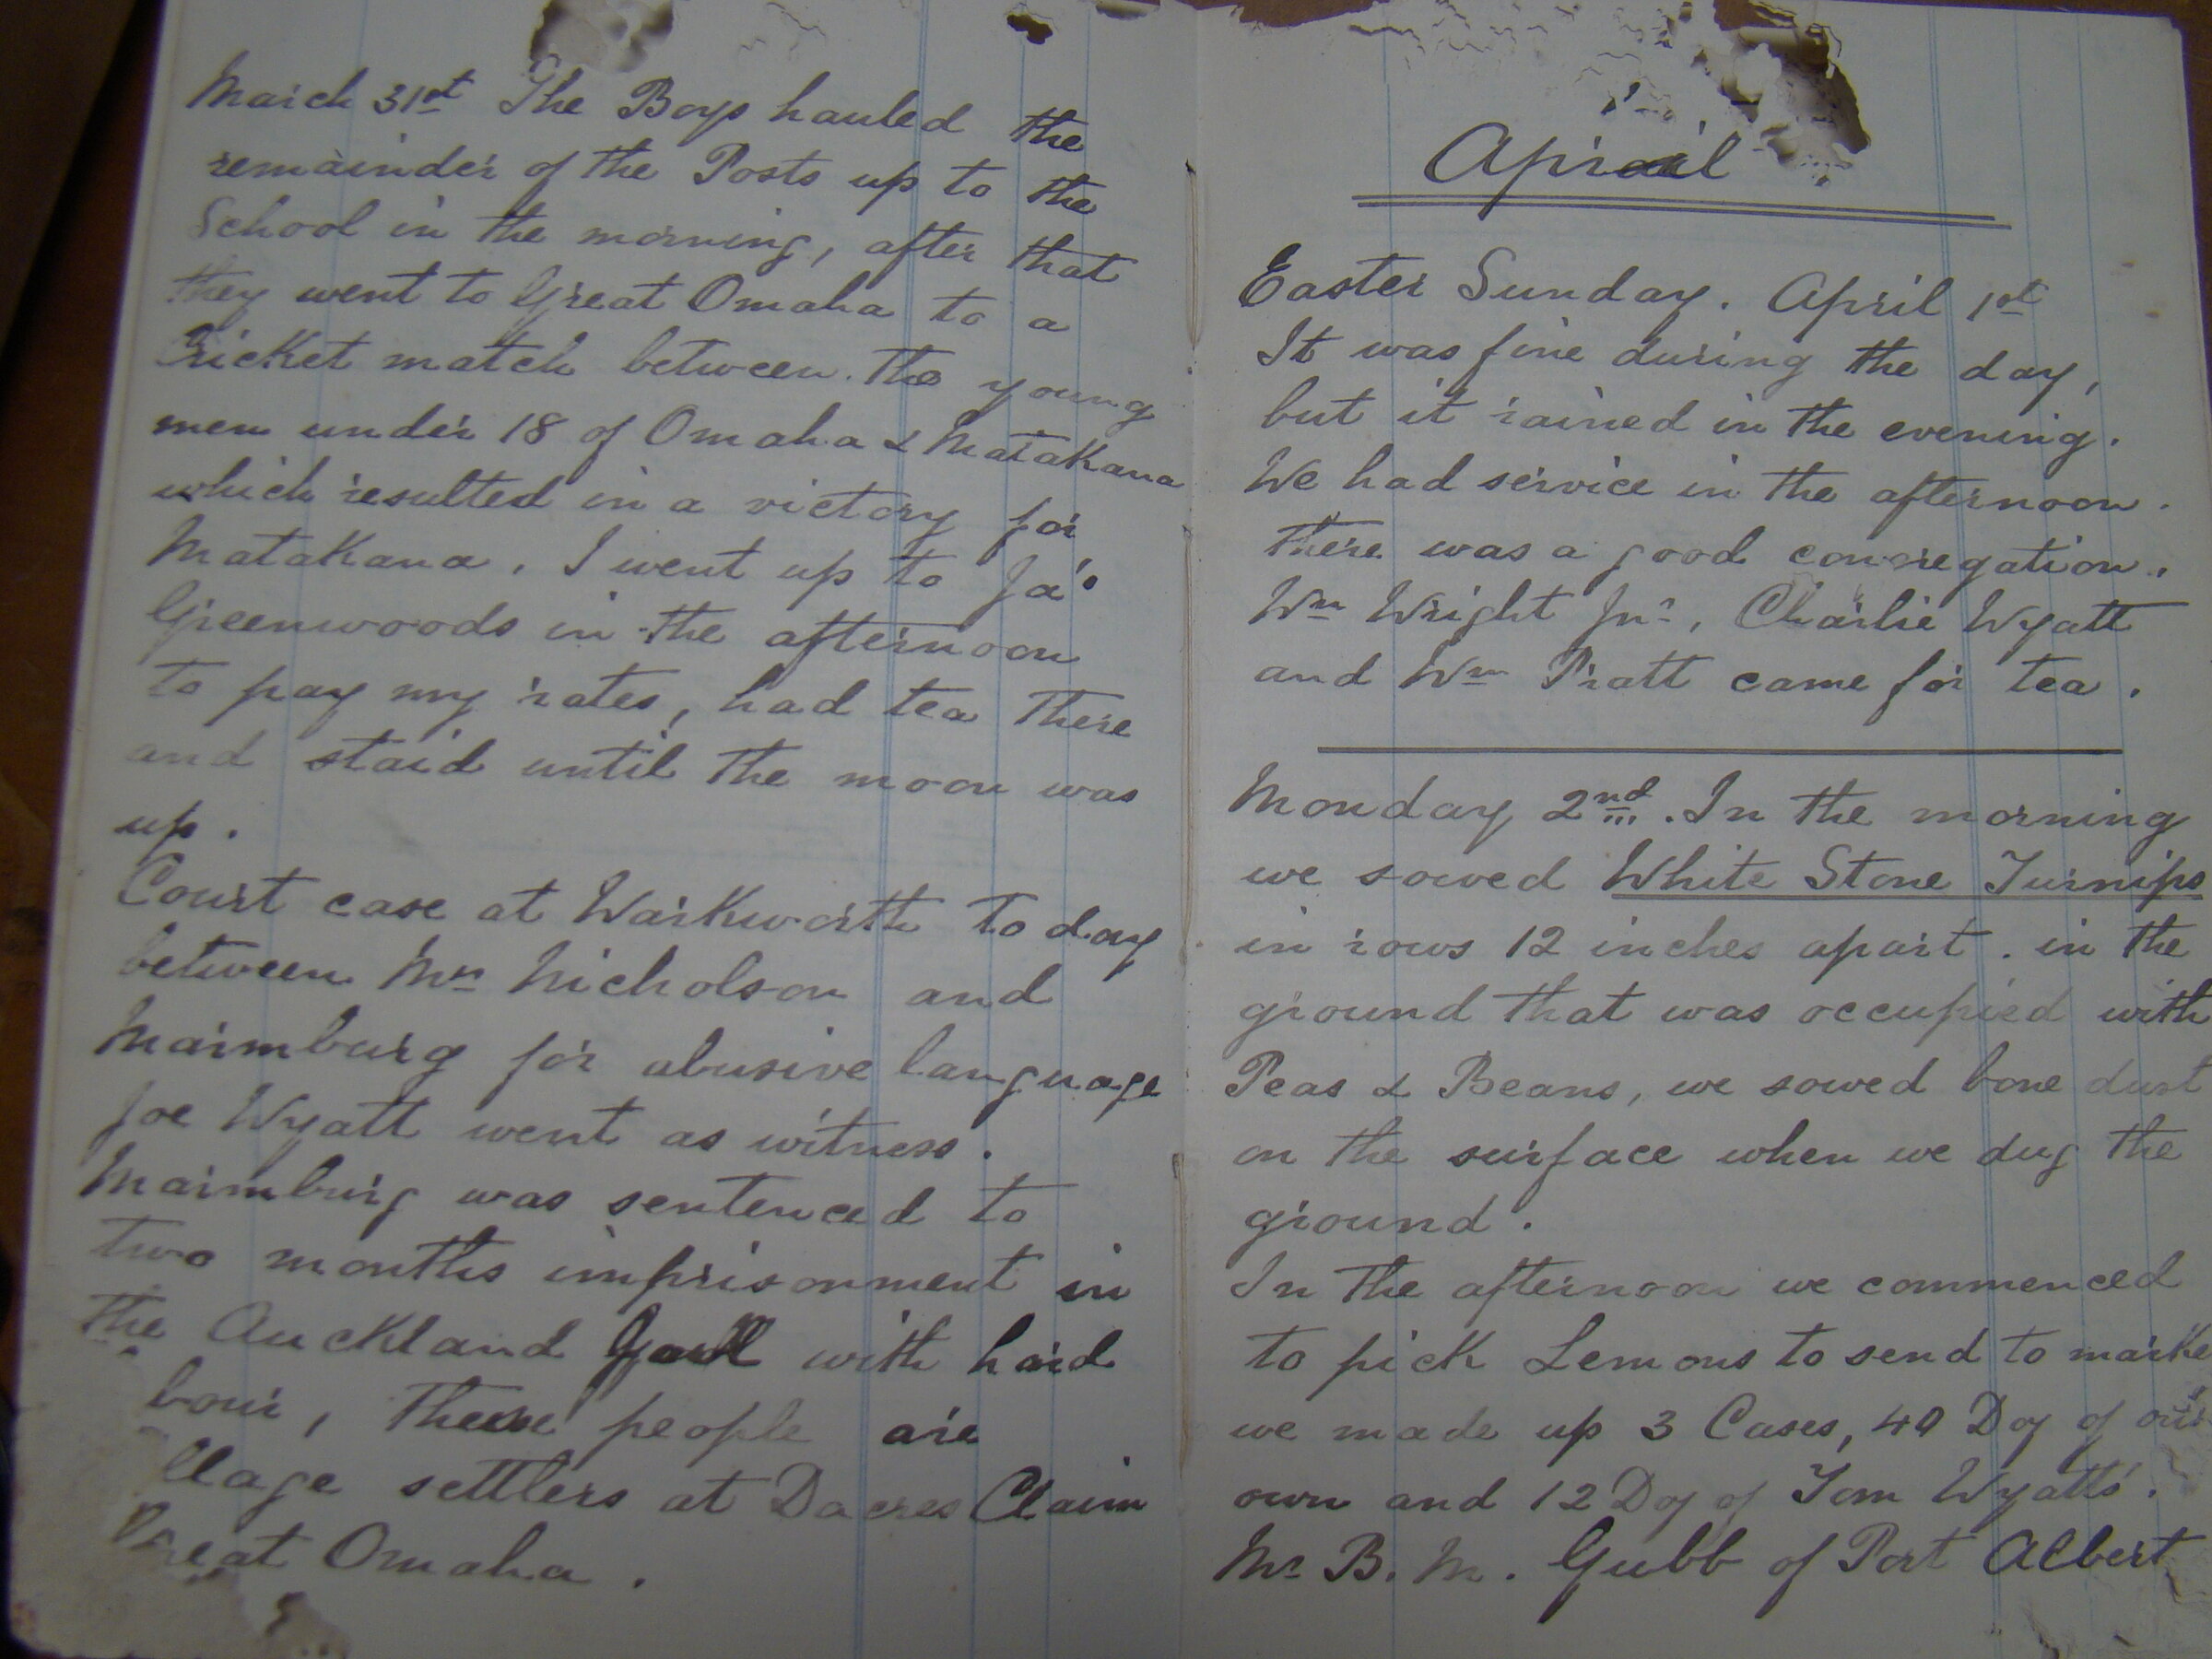 March 31st The Boys hauled the
remainder of the Posts up to the
School in the morning, after that
they went to Great Omaha to a
Cricket match between the young
men under 18 of Omaha & Matakana
which resulted in a victory for
Matakana. I went up to Ja's
Greenwoods in the afternoon
to pay my rates, had tea there
and staid until the moon was
up.
Court case at Warkworth to day
between Mrs Nicholson and
Maimburg for abusive language
Joe Wyatt went as witness.
Maimburg was sentenced to
two months imprisonment in
the Auckland with hard
bour, these people are
llage settlers at Dacres Claim
Great Omaha.
April
Easter Sunday. April 1st
It was fine during the day,
but it rained in the evening.
We had service in the afternoon.
There was a good congregation.
Wm Wright Jnr, Charlie Wyatt
and Wm Pratt came for tea.
Monday 2nd. In the morning
we sowed White Stone Turnips
in rows 12 inches apart. in the
ground that was occupied with
Peas & Beans, we sowed bone dust
on the surface when we dug the
ground.
In the afternoon we commenced
to pick Lemons to send to marke
we made up 3 Cases, 40 Doz of our
own and 12 Doz of Tom Wyatts'.
Mr B. M. Gubb of Port Albert